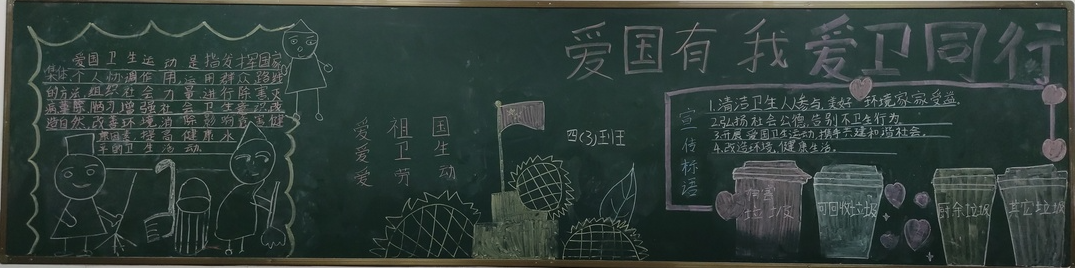 爱国卫生运动是指发挥国家
集体、个人协调作用,运用群众路线
的方法,组织社会力量进行除害灭
病,兼除陋习,增强社会卫生意识,改
造自然,改善环境,消除影响危害健
康因素,提高健康水
平的卫生活动.
爱 祖 国
爱 卫 生
爱 劳 动
四(3)班
爱国有我 爱卫同行
宣传标语
1.清洁卫生人人参与,美好环境家家受益.
2.弘扬社会公德,告别不卫生行为
3.开展爱国卫生运动,携手共建和谐社会.
4.改造环境,健康生活.
有害垃圾
可回收垃圾
厨余垃圾
其它垃圾